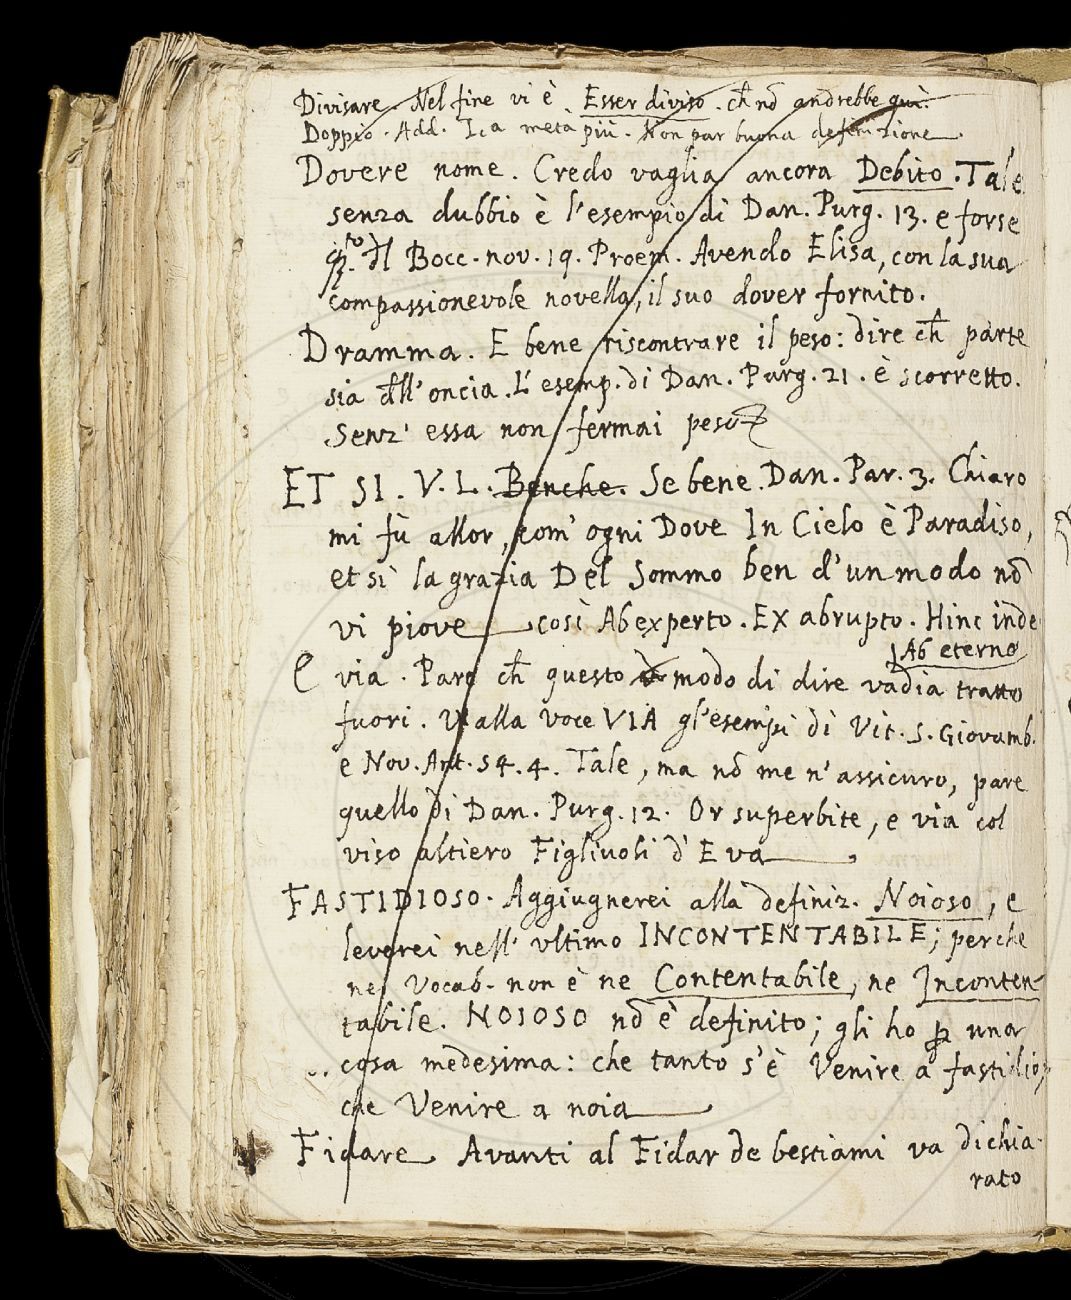 Divisare. Nel fine vi è. Esser diviso. ch̄ nõ andrebbe quì.
Doppio. Add. metà più. Non par buona definizione.
Dovere nome. Credo vaglia ancora Debito. Tale
senza dubbio è l'esempio di Dan. Purg. 13. e forse
Bocc. nov. 19. Proem. Avendo Elisa, con la sua
compassionevole novella, il suo dover fornito.
Dramma. E bene riscontrare il peso: dire ch̄ parte
sia dell'oncia. L'esemp. di Dan. Purg. 21. è scorretto.
Senz' essa non fermai peso
ET SI. V. L. Benche. Se bene. Dan. Par. 3. Chiaro
mi fù allor, com' ogni Dove In Cielo è Paradiso,
et sì la grazia Del Sommo ben d'un modo nõ
vi piove così Ab experto. Ex abrupto. Hinc inde
Ab eterno
E via. Pare ch̄ questo modo di dire vadia tratto
fuori. V. alla voce VIA gl'esempi di Vit. S. Giovamb.
e Nov. Ant. 54. 4. Tale, ma nõ me n'assicuro, pare
quello di Dan. Purg. 12. Or superbite, e via col
viso altiero Figliuoli d'Eva
FASTIDIOSO. Aggiugnerei alla definiz. Noioso, e
leverei nell' vltimo INCONTENTABILE; perche
nel Vocab. non è ne Contentabile, ne Inconten-
tabile. NOIOSO nõ è definito; gli ho ꝑ una
cosa medesima: che tanto s'è Venire a fastidio,
che Venire a noia
Fidare Avanti al Fidar de bestiami va dichia-
rato